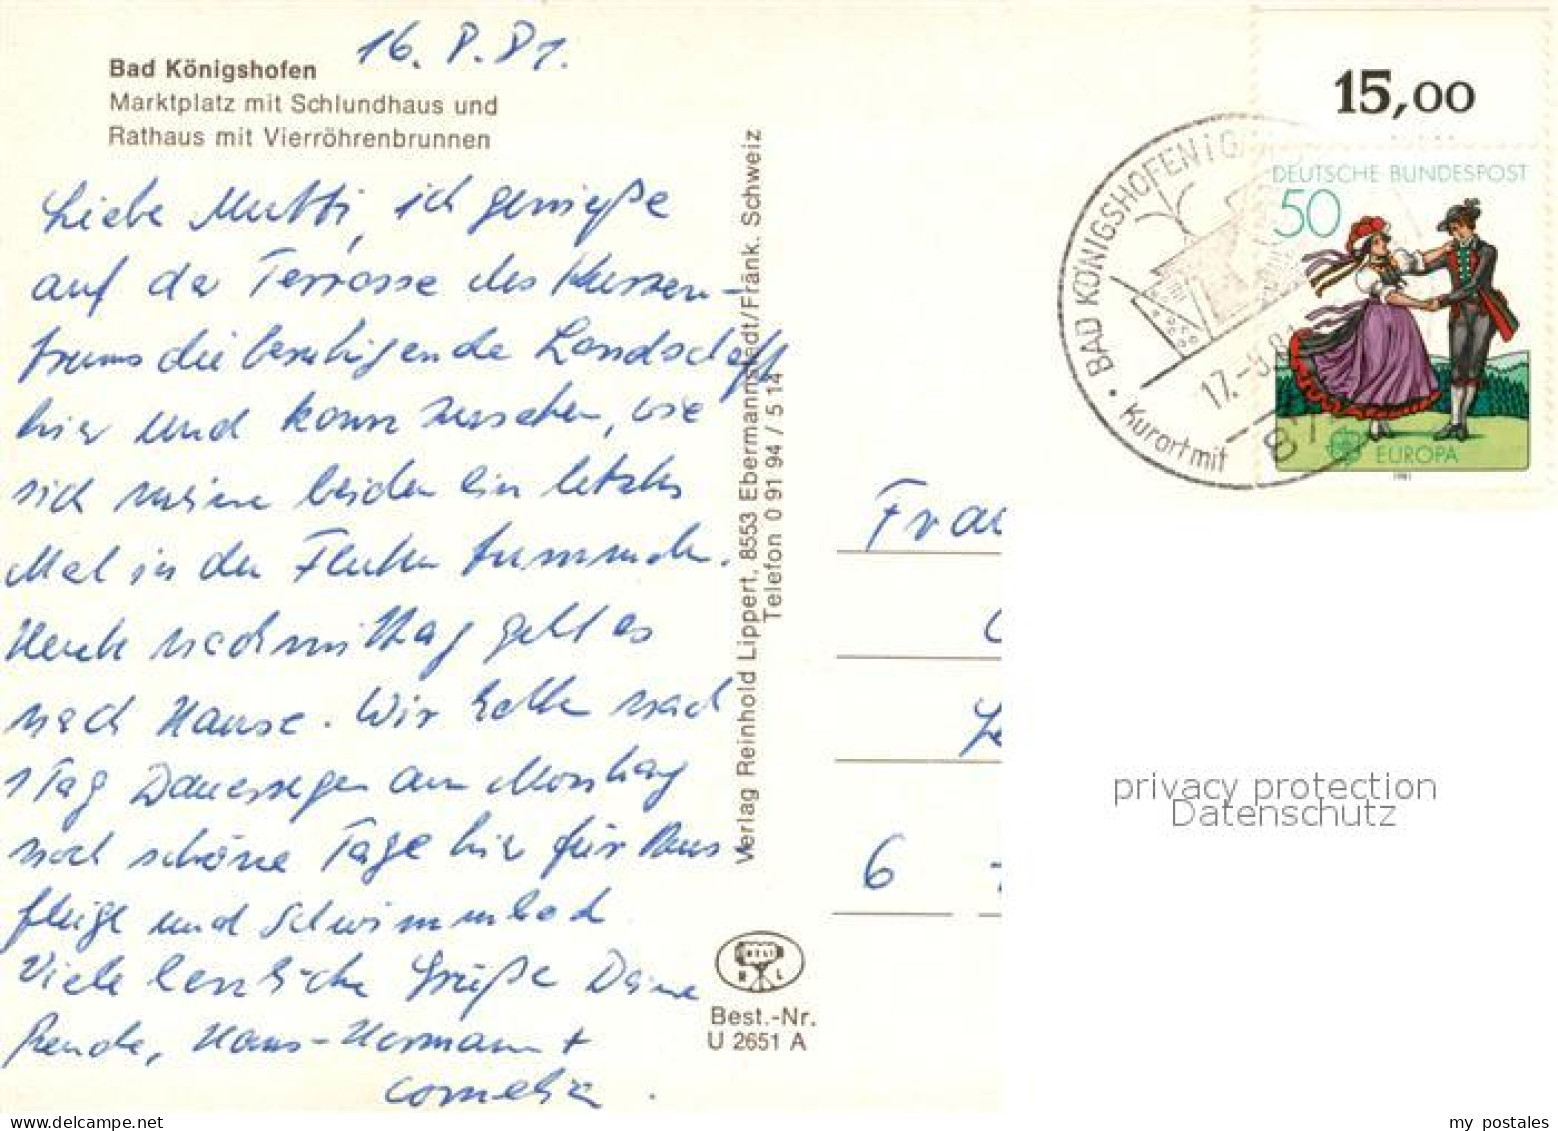 16. 8. 81.
Bad Königshofen
Marktplatz mit Schlundhaus und
Rathaus mit Vierröhrenbrunnen
Liebe Mutti, ich genieße
auf der Terrasse des Kurzen-
trums die beruhigende Landschaft
hier und kann zusehen, wie
sich meine beiden ein letztes
Mal in den Fluten tummeln.
Heute nachmittag geht es
nach Hause. Wir hatten nach
1 Tag Dauerregen am Montag
noch schöne Tage hier für Aus
flüge und Schwimmbad
Viele herzliche Grüße Deine
Hans-Hermann +
Cornelia.
Verlag Reinhold Lippert, 8553 Ebermannstadt/Fränk. Schweiz
Telefon 0 91 94 / 5 14
RELI
R L
Best.-Nr.
U 2651 A
15,00
DEUTSCHE BUNDESPOST
50
EUROPA
1981
BAD KÖNIGSHOFEN i G
17.-8.8
Kurort mit
87
Frau
6
privacy protection
Datenschutz
my postales